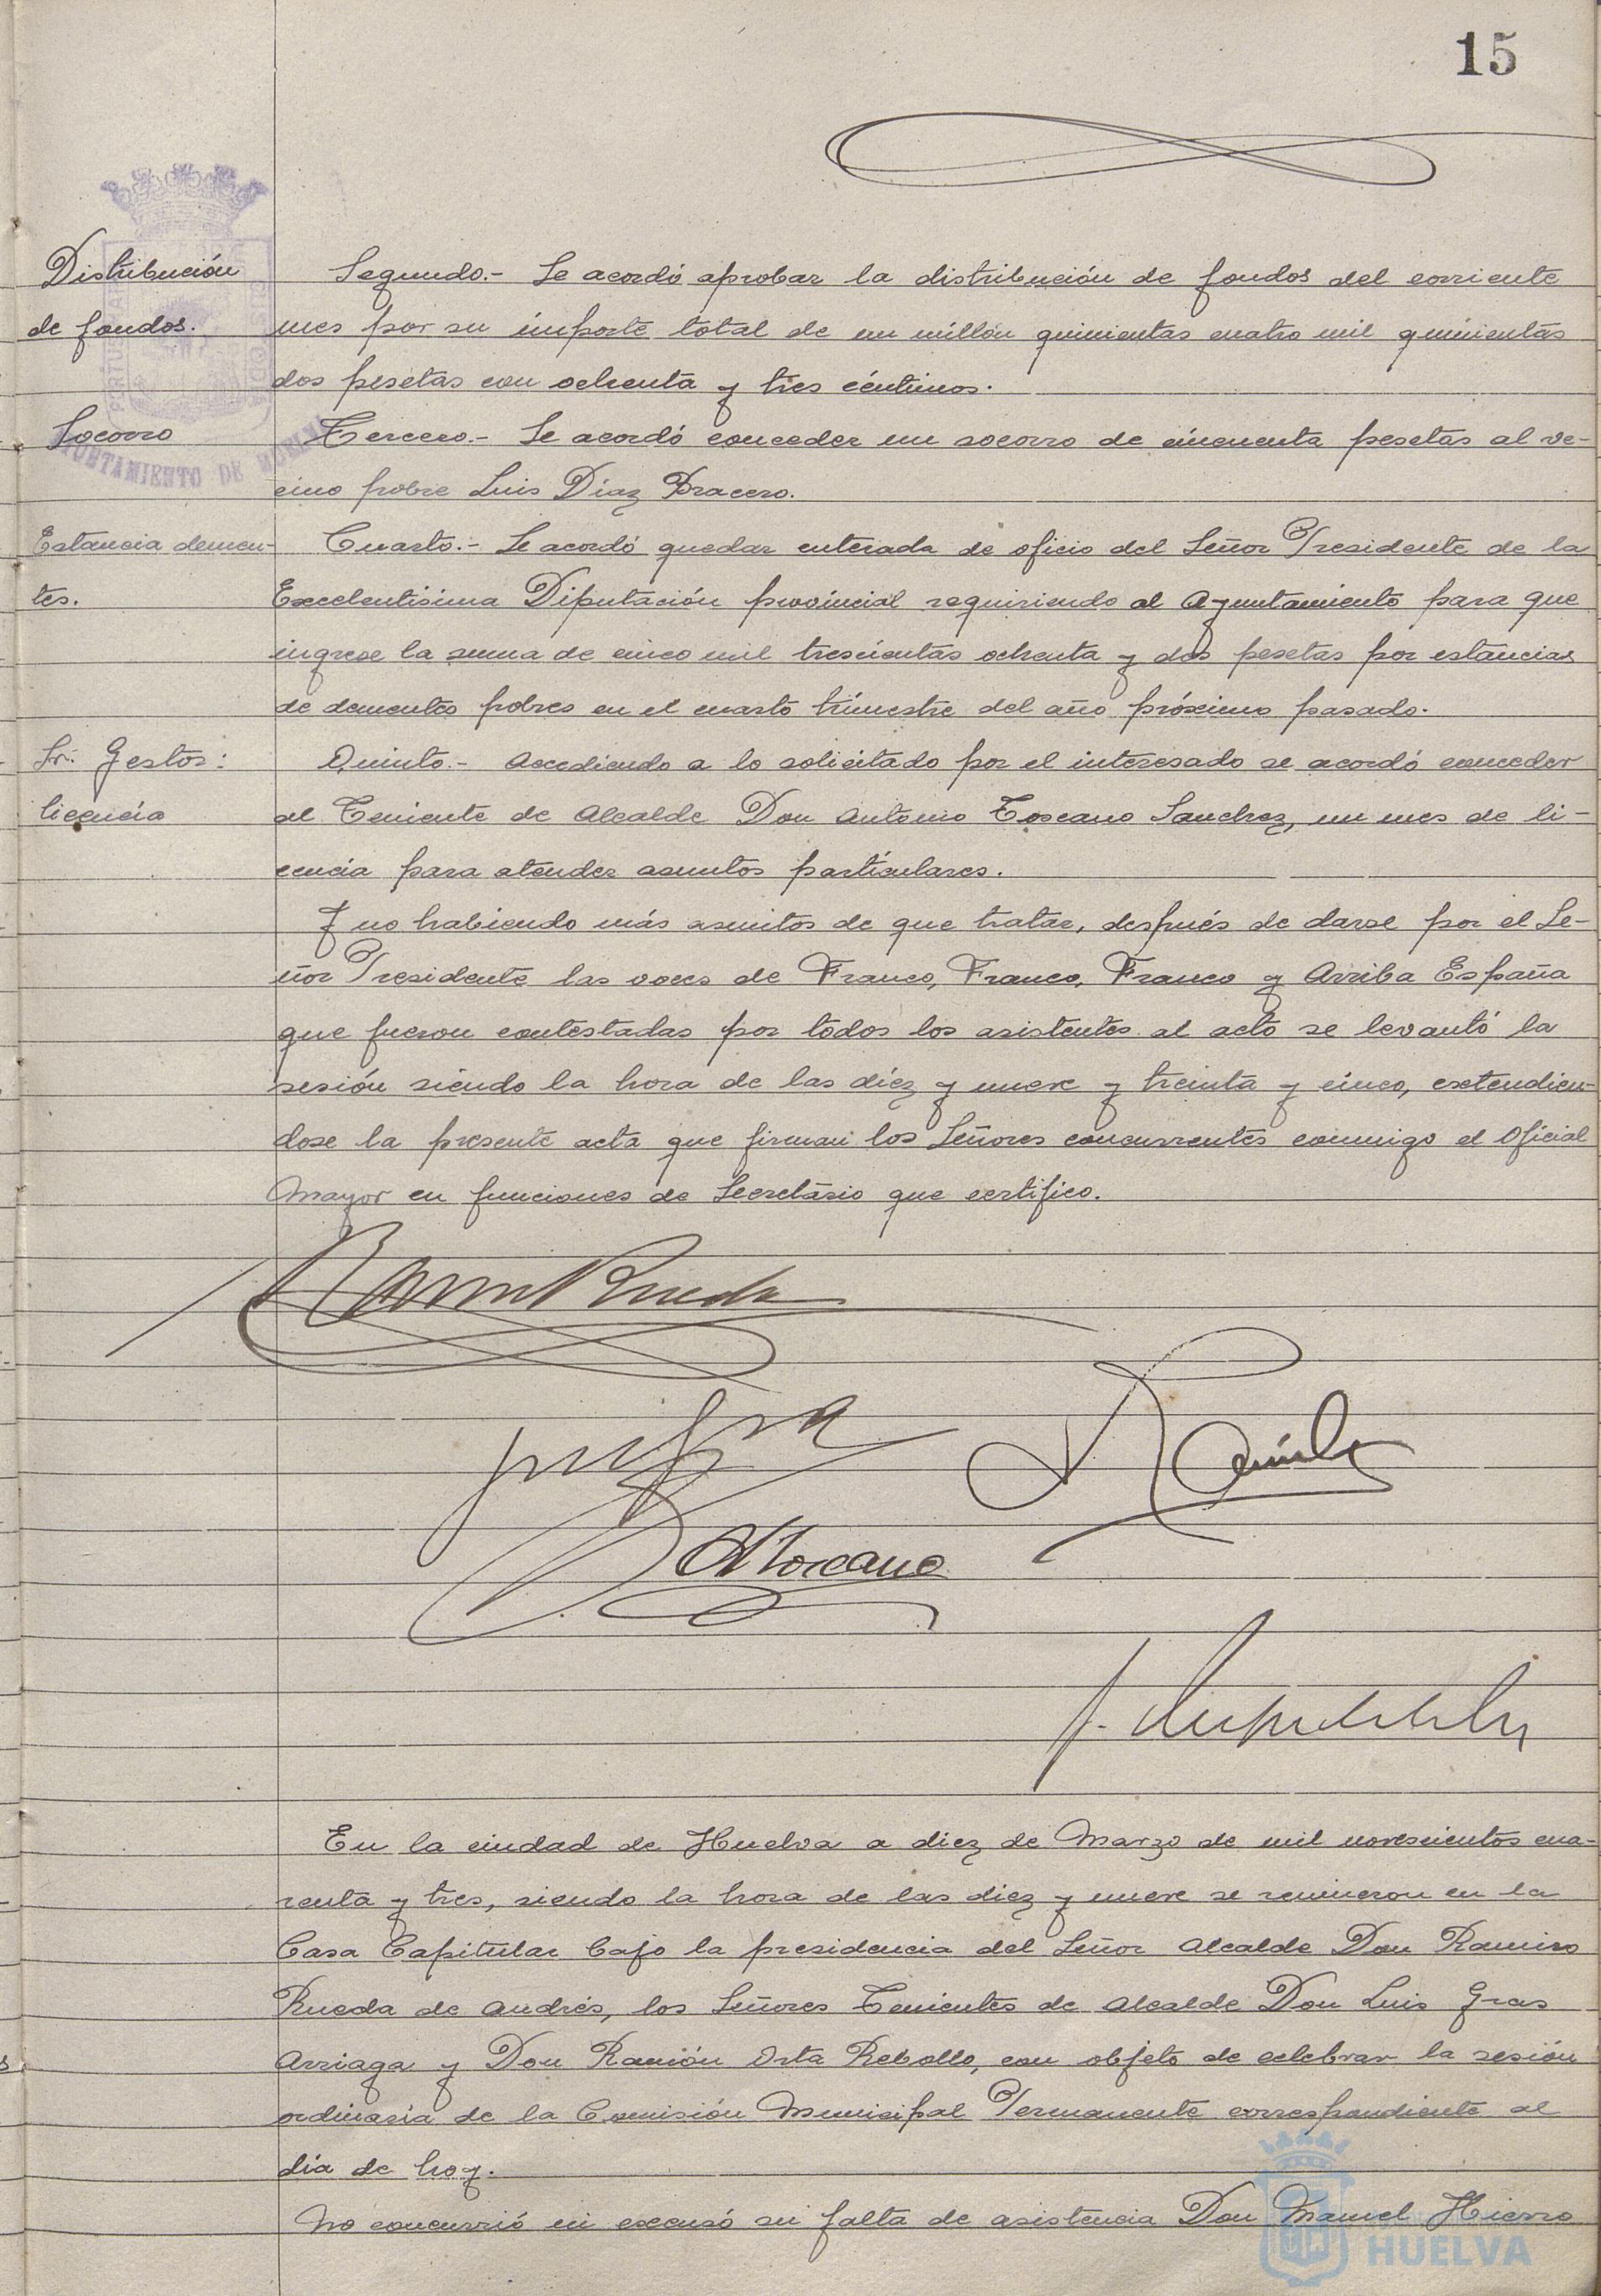 15
Distribución
de fondos.
Segundo.- Se acordó aprobar la distribución de fondos del corriente
mes por su importe total de un millón quinientas cuatro mil quinientas
dos pesetas con ochenta y tres céntimos.
Socorro
Tercero.- Se acordó conceder un socorro de cincuenta pesetas al ve-
cino pobre Luis Díaz Dracero.
AYUNTAMIENTO DE HUELVA
Estancia demen-
tes.
Cuarto.- Se acordó quedar enterada de oficio del Señor Presidente de la
Excelentisima Diputación provincial requiriendo al Ayuntamiento para que
ingrese la suma de cinco mil trescientas ochenta y dos pesetas por estancias
de dementes pobres en el cuarto trimestre del año próximo pasado.
Sr. Gestor:
licencia
Quinto.- Accediendo a lo solicitado por el interesado se acordó conceder
al Teniente de Alcalde Don Antonio Toscano Sanchez, un mes de li-
cencia para atender asuntos particulares.
Y no habiendo más asuntos de que tratar, después de darse por el Se-
ñor Presidente las voces de Franco, Franco, Franco y Arriba España
que fueron contestadas por todos los asistentes al acto se levantó la
sesión siendo la hora de las diez y nueve y treinta y cinco, extendien-
dose la presente acta que firman los Señores concurrentes conmigo el Oficial
Mayor en funciones de Secretario que certifico.
Ramiro Rueda
AToscano
En la ciudad de Huelva a diez de Marzo de mil novescientos cua-
renta y tres, siendo la hora de las diez y nueve se reunieron en la
Casa Capitular bajo la presidencia del Señor Alcalde Don Ramiro
Rueda de Andrés, los Señores Tenientes de Alcalde Don Luis Gras
Arriaga y Don Ramón Orta Rebollo, con objeto de celebrar la sesión
ordinaria de la Comisión Municipal Permanente correspondiente al
día de hoy.
No concurrió ni excusó su falta de asistencia Don Manuel Hierro
HUELVA